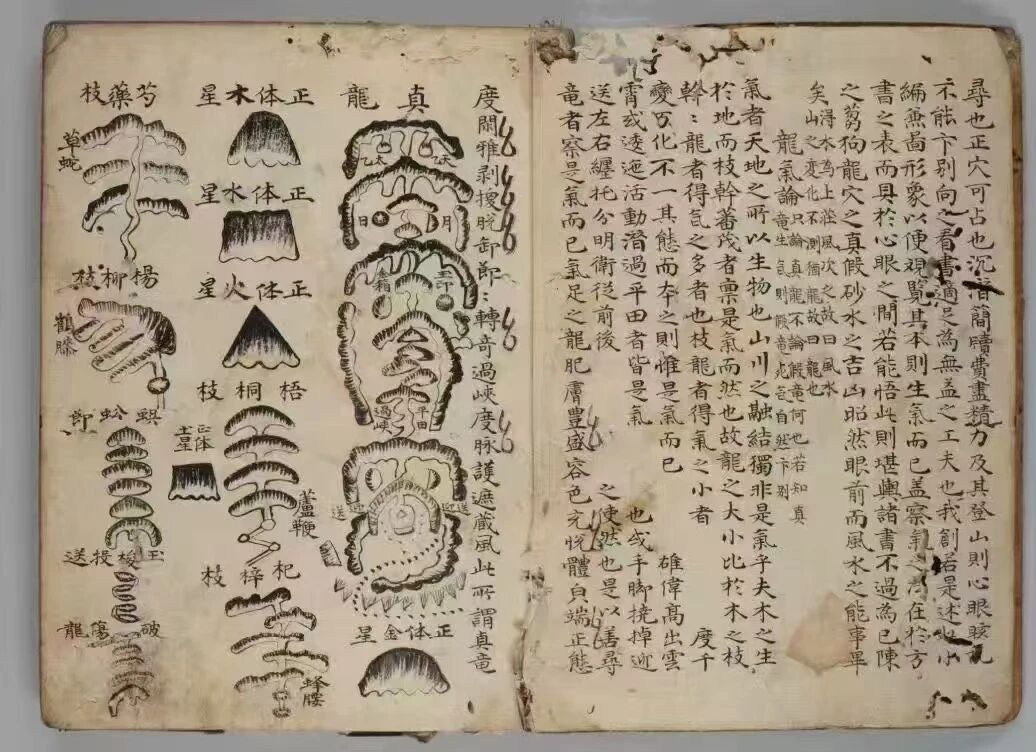 尋也正穴可占也沉潛簡牘費盡精力及其登山則心眼眩亂
不能卞別向之看書適足為無益之工夫也我創若是述此小
編兼啚形象以便覌覽其本則生氣而已盖察氣之法在於方
書之表而具於心眼之間若能悟此則堪輿諸書不過為已陳
之蒭狗龍穴之真假砂水之吉凶昭然眼前而風水之能事畢
矣
得水為上莊風次之故曰風水
山之变化不測獨龍故曰龍也
龍氣論
只論真龍不論假竜何也若知真
竜生氣則假竜死气自然卞別
氣者天地之所以生物也山川之融結獨非是氣乎夫木之生
於地而枝幹蕃茂者禀是氣而然也故龍之大小比於木之枝
幹〻龍者得氣之多者也枝龍者得氣之小者 度千
變万化不一其態而本之則惟是氣而已 雄偉高出雲
霄或逶迤活動潛過平田者皆是氣 也或手脚撓掉迎
送左右纏托分明衛從前後 之使然也是以善尋
竜者察是氣而已氣足之龍肥膚豊盛容色充悅體皃端正態
度閑雅剥換脫卸節〻轉奇過峽度脉護遮蔵風此所謂真竜
真龍
天乙
太乙
月
日
玉印
金箱
平田
過峽
迎送
迎送
正体金星
正体木星
正体水星
正体火星
梧桐枝
正体
土星
蘆鞭
杞梓枝
蜂腰
芍藥枝
草蛇
楊柳枝
鸛膝
蜈蚣節
玉梭投送
破傷龍